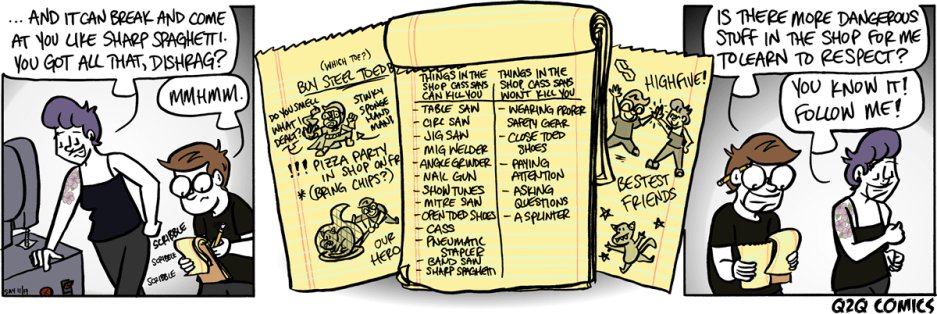 ... AND IT CAN BREAK AND COME
AT YOU LIKE SHARP SPAGHETTI.
YOU GOT ALL THAT, DISHRAG?
MMHMM.
SCRIBBLE
SCRIBBLE
SCRIBBLE
(WHICH TOE?)
BUY STEEL TOED B
DO YOU SMELL
WHAT I
DEALS?
STINKY
SPONGE
HAND
MAN!
!!! PIZZA PARTY
IN SHOP ON FR
* (BRING CHIPS?)
OUR
HERO
THINGS IN THE
SHOP CASS SAYS
CAN KILL YOU
- TABLE SAW
- CIRC SAW
- JIG SAW
- MIG WELDER
- ANGLE GRINDER
- NAIL GUN
- SHOWTUNES
- MITRE SAW
- OPEN TOED SHOES
- CASS
- PNEUMATIC
STAPLER
- BAND SAW
- SHARP SPAGHETTI
THINGS IN THE
SHOP CASS SAYS
WON'T KILL YOU
- WEARING PROPER
SAFETY GEAR
- CLOSE TOED
SHOES
- PAYING
ATTENTION
- ASKING
QUESTIONS
- A SPLINTER
HIGHFIVE!
BESTEST
FRIENDS
IS THERE MORE DANGEROUS
STUFF IN THE SHOP FOR ME
TO LEARN TO RESPECT?
YOU KNOW IT!
FOLLOW ME!
Q2Q COMICS